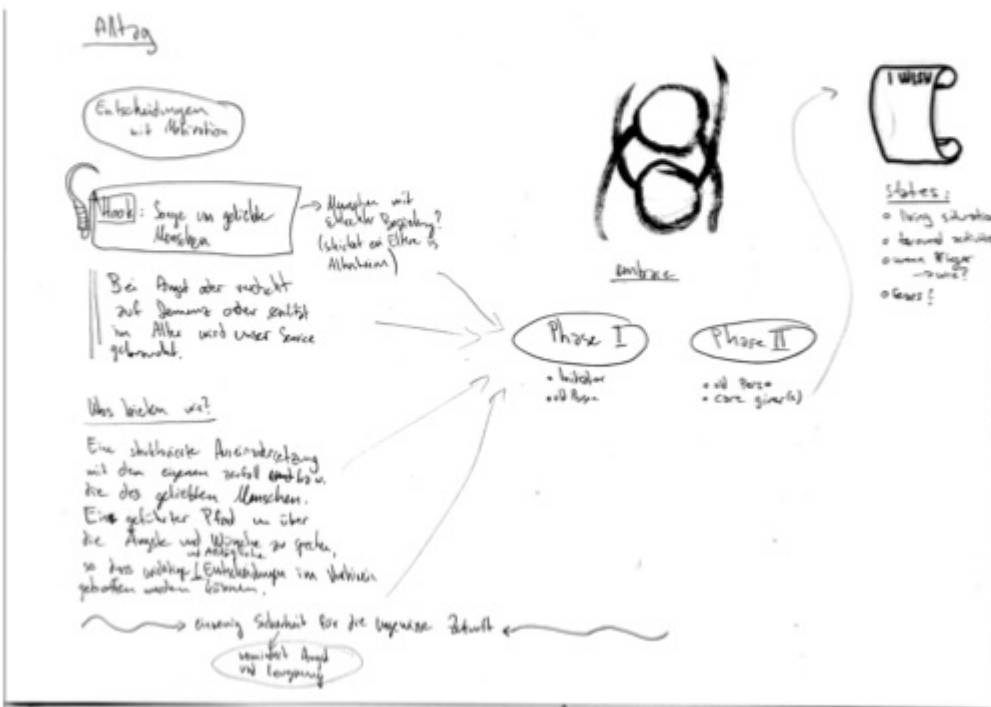 Alltag
Entscheidungen
mit Motivation
Hook: Sorge um geliebte
Menschen
→ Menschen mit
schlechter Beziehung?
(steckt er Eltern in
Altersheim)
Bei Angst oder
auf Demenz oder senilität
im Alter wird unser Service
gebraucht.
Was bieten wir?
Eine strukturierte Auseinandersetzung
mit dem eigenen zerfall bzw.
die des geliebten Menschen.
Ein geführter Pfad um über
die Ängste und Wünsche zu sprechen,
und Alltägliche
so dass wichtige Entscheidungen im Vorhinein
getroffen werden können.
einwenig Sicherheit für die ungewisse Zukunft
vermindert Angst
und
embrace
Phase I
• Initiator
• old Person
Phase II
• old Person
• care giver(s)
I WISH
States:
• living situation
• favourd activities
• wann Pfleger
→ wie?
• Fears?